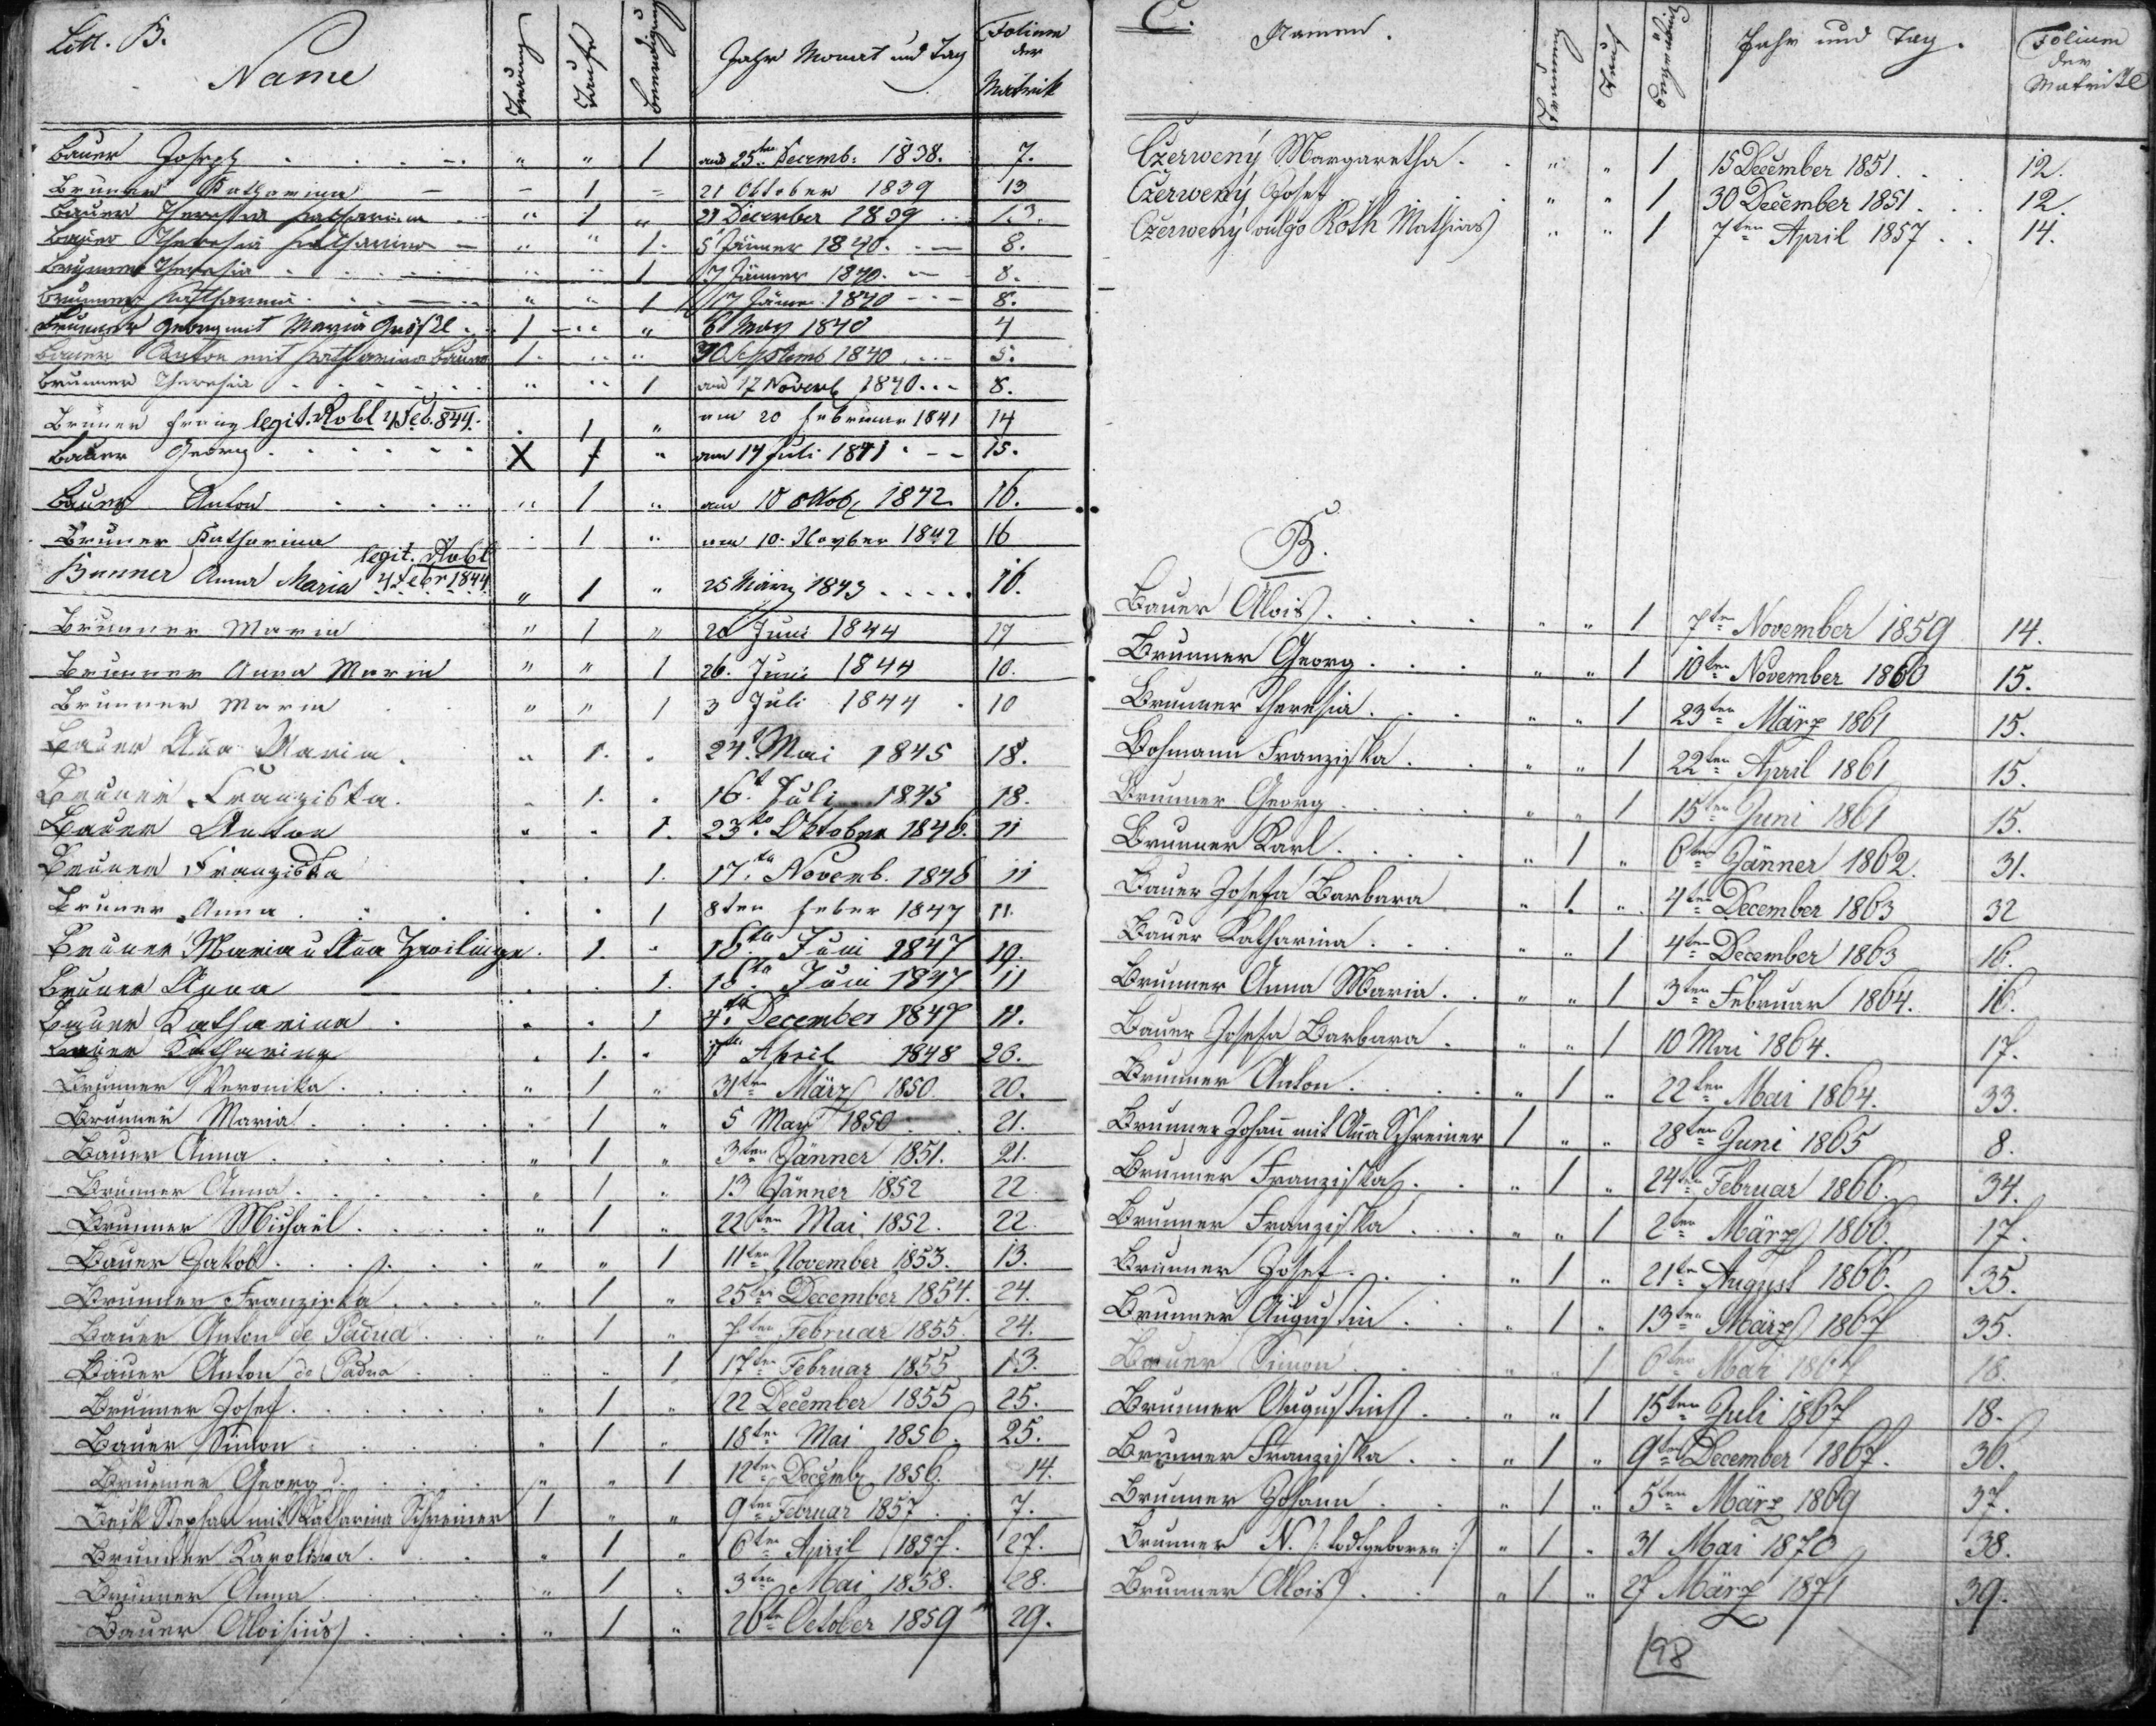 Litt. B.
Name Trauung Taufe Beerdigung Jahr Monat und Tag Folium der Matrik
Bauer Joseph . . . . " " 1 am 25ten Decemb: 1838. 7.
Brunner Katharina — — 1 " 21 Oktober 1839 13
Bauer Theresia Katharina " 1 " 29 December 1839 13.
Bauer Theresia Katharina — " " 1. 5 Jänner 1840. 8.
Brunner Theresia . . . " " 1 17 Jänner 1840. 8.
Brunner Katharina . . " " 1 17 Jänner 1840 8.
Brunner Georg mit Maria Größl . 1 " " 6 May 1840 4
Bauer Anton mit Katharina Bauer 1. " " 30 Septemb 1840 5.
Brunner Theresia . . . " " 1 am 17 Novemb 1840 8.
Bruner Franz legit. Robl 4 Feb. 844. . 1 " am 20 Februar 1841 14
Bauer Georg . . . . X 1 " am 14 Juli 1841 15.
Bauer Anton . . . " 1 " am 18 Oktob 1842 16.
Bruner Katharina . 1 " am 10. Novber 1842 16
legit. Robl
Bunner Anna Maria 4 Febr 1844 " 1 " 25 März 1843 . . . . . 16.
Brunner Maria " 1 " 20 Juni 1844 17
Brunner Anna Maria " " 1 26. Juni 1844 10.
Brunner Maria " " 1 3 Juli 1844 . 10
Bauer Ana Maria . " 1. . 24t Mai 1845 18.
Bruner Franziska. " 1. . 16t Juli 1845 18.
Bauer Anton " . 1. 23to Oktober 1846. 11
Bruner Franziska . . 1. 17.tn Novemb. 1846 11
Bruner Anna . . . . . 1 8ten Feber 1847 11.
Bruner Maria u Ana Zwilinge. . 1. " 16.tn Juni 1847 19.
Bruner Anna . . 1. 18.tn Juni 1847 11
Bauer Katharina . . . 1 4.tn December 1847 11.
Bauer Katharina . 1. . 11tn April 1848 20.
Brunner Veronika . . . . " 1 " 31ten März 1850. 20.
Brunner Maria . . . . . " 1 " 5 May 1850 . . 21.
Bauer Anna . . . . . " 1 " 3ten Jänner 1851. 21.
Brunner Anna . . . . . " 1 " 13 Jänner 1852 22
Brunner Michael . . . . " 1 " 22ten Mai 1852. 22.
Bauer Jakob . . . . . " " 1 11ten November 1853. 13.
Brunner Franziska . . . . " 1 " 25ten December 1854. 24.
Bauer Anton de Padua . . . " 1 " 7ten Februar 1855. 24.
Bauer Anton de Padua . . . " " 1 17ten Februar 1855 13.
Brunner Josef . . . . . " 1 " 22 December 1855 25.
Bauer Simon . . . . . " 1 " 18ten Mai 1856. 25.
Brunner Georg . . . . . " " 1 12ten Decemb 1856. 14.
Beck Stephan mit Katharina Schreiner 1 " " 9ten Februar 1857 . . 7.
Brunner Karolina . . . . " 1 " 6ten April 1857. 27.
Brunner Anna . . . . . " 1 " 3ten Mai 1858. 28.
Bauer Aloisius . . . . . " 1 " 26ten October 1859 29.
C. Namen. Trauung Tauf Begräbniß Jahr und Tag. Folium der Matrikl
Czerweny Margaretha . . " " 1 15 December 1851 . . . 12.
Czerweny Josef . . . " " 1 30 December 1851 . . . 12.
Czerweny vulgo Roth Mathias " " 1 7ten April 1857 . . 14.
B.
Bauer Alois . . . . . " " 1 7ten November 1859 14.
Brunner Georg . . . . " " 1 10ten November 1860 15.
Brunner Theresia . . . " " 1 23ten März 1861 15.
Bohmann Franziska . . . " " 1 22ten April 1861 15.
Brunner Georg . . . . " " 1 15ten Juni 1861 15.
Brunner Karl . . . . " 1 " 6ten Jänner 1862. 31.
Bauer Josefa Barbara " 1. " 4ten December 1863 32
Bauer Katharina . . . " " 1 4ten December 1863 16.
Brunner Anna Maria . . " " 1 3ten Februar 1864. 16.
Bauer Josefa Barbara . " " 1 10 Mai 1864. 17.
Brunner Anton . . . . " 1 " 22ten Mai 1864. 33.
Brunner Johan mit Ana Schreiner 1 " " 28ten Juni 1865 8.
Brunner Franziska . . . " 1 " 24ten Februar 1866. 34.
Brunner Franziska . . . " " 1 2ten März 1866. 17.
Brunner Josef . . . . " 1 " 21ten August 1866. 35.
Brunner Augustin . . . " 1 " 13ten März 1867 35.
Bauer Simon . . . . " " 1 6ten Mai 1867 18.
Brunner Augustin . . " " 1 15ten Juli 1867 18.
Brunner Franziska . . " 1 " 9ten December 1867. 36.
Brunner Johann . . . " 1 " 5ten März 1869 37.
Brunner N. /: todtgeboren :/ " 1 " 31 Mai 1870 38.
Brunner Alois . . . " 1 " 27 März 1871 39.
98